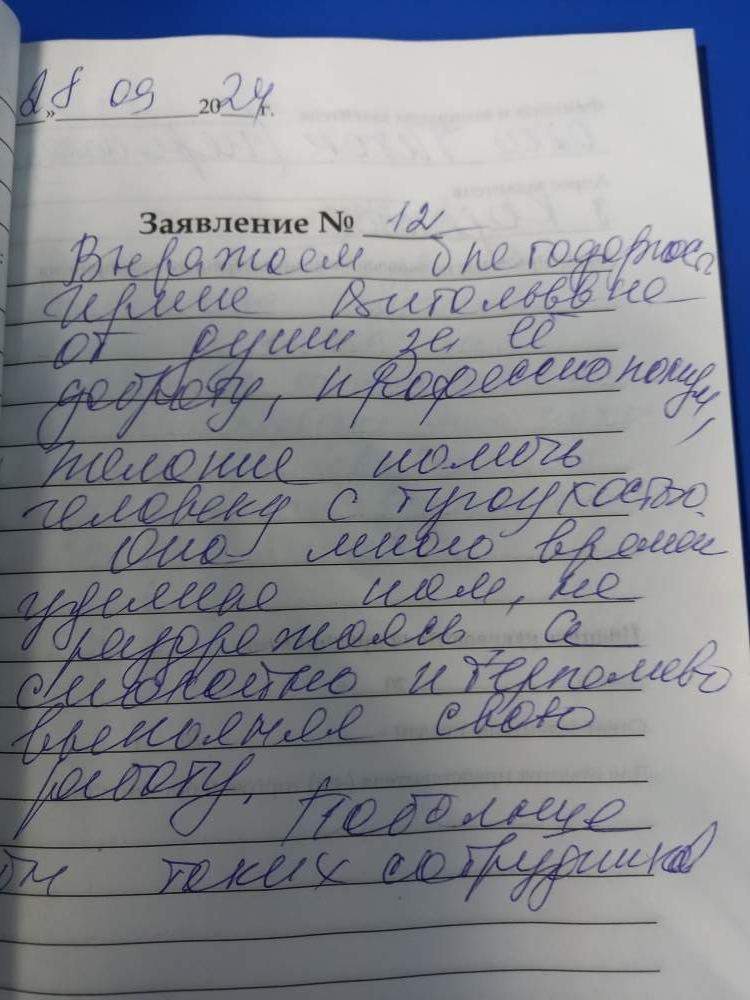 28 09 2024г.
Заявление № 12
Выражаем благодарность
Ирине Витольдовне
от души за её
доброту, профессионализм,
желание помочь
человеку с тугоухостью.
Она много времени
уделила нам, не
раздражаясь а
спокойно и терпеливо
выполняя свою
работу.
Побольше
бы таких сотрудников